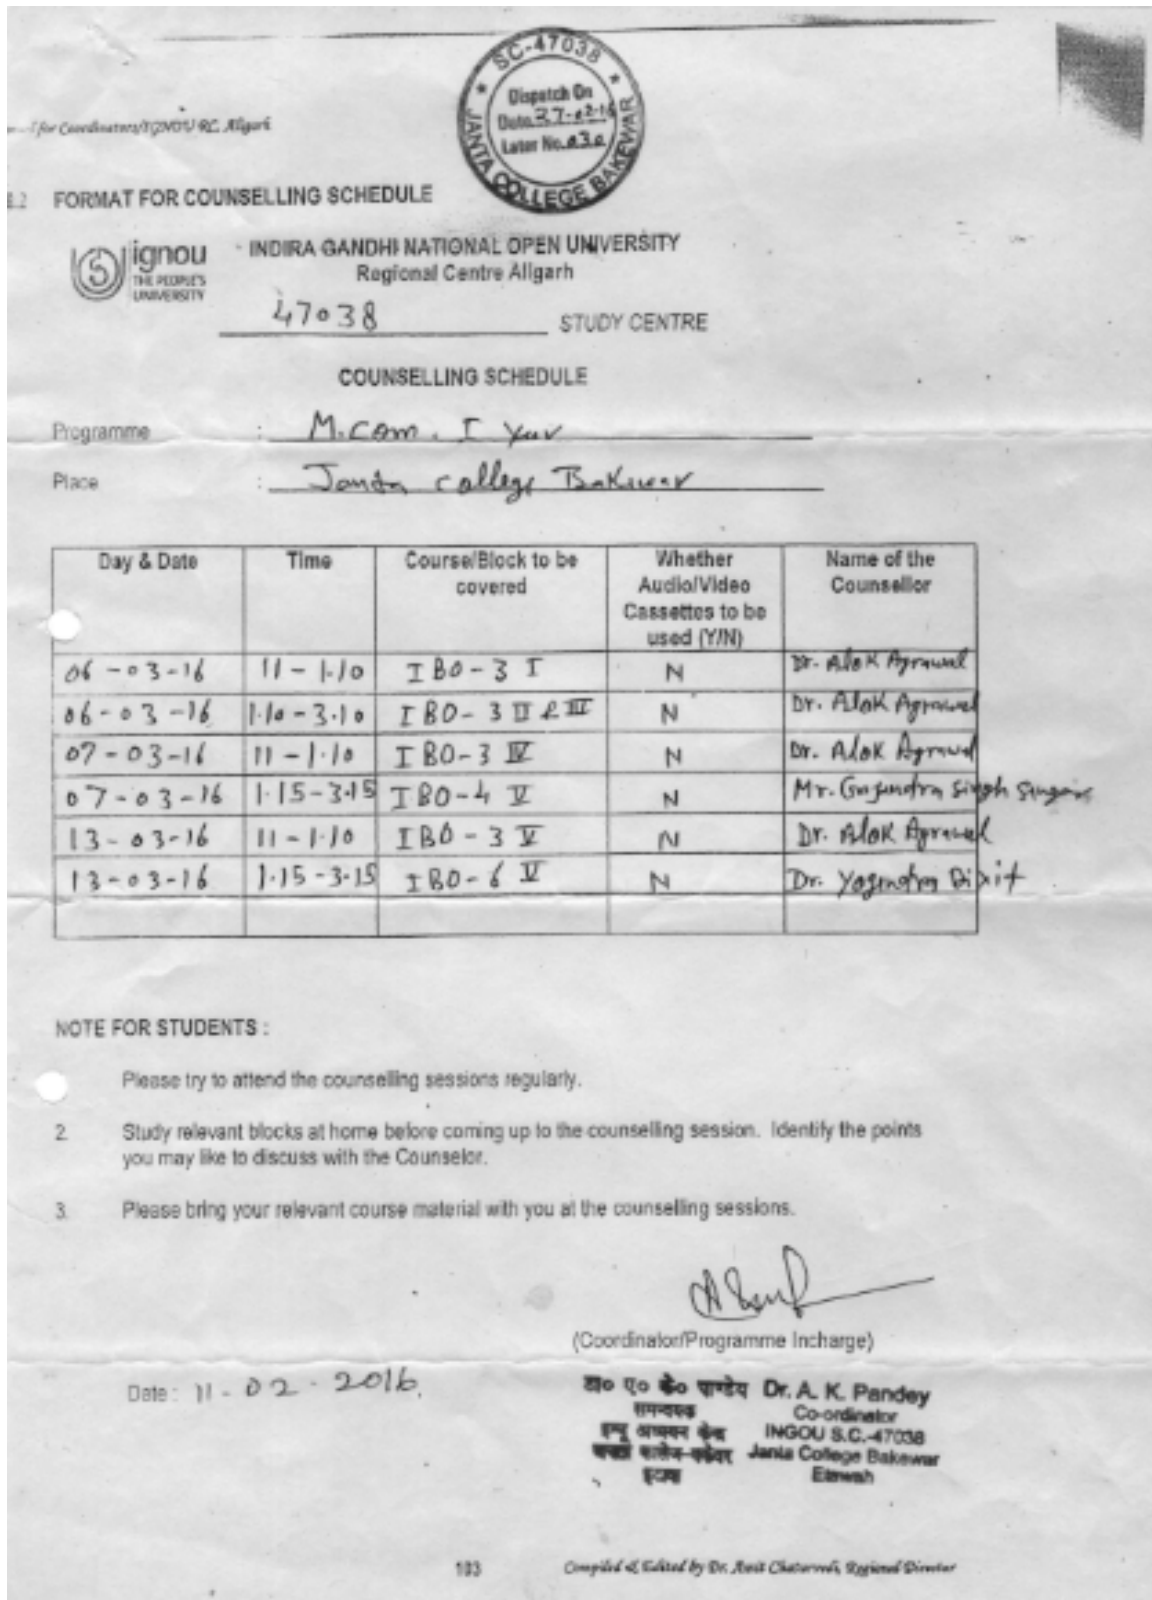 SC-47038
Dispatch On
Date 27-02-16
Later No. 030
JANTA COLLEGE BAKEWAR
for Coordinators/IGNOU RC, Aligarh
.2 FORMAT FOR COUNSELLING SCHEDULE
ignou
THE PEOPLE'S
UNIVERSITY
INDIRA GANDHI NATIONAL OPEN UNIVERSITY
Regional Centre Aligarh
47038 STUDY CENTRE
COUNSELLING SCHEDULE
Programme : M.Com. I Year
Place : Janta College Bakewar
Day & Date Time Course/Block to be covered Whether Audio/Video Cassettes to be used (Y/N) Name of the Counsellor
06-03-16 11-1.10 IBO-3 I N Dr. Alok Agrawal
06-03-16 1.10-3.10 IBO-3 II & III N Dr. Alok Agrawal
07-03-16 11-1.10 IBO-3 IV N Dr. Alok Agrawal
07-03-16 1.15-3.15 IBO-4 V N Mr. Gajendra Singh
13-03-16 11-1.10 IBO-3 V N Dr. Alok Agrawal
13-03-16 1.15-3.15 IBO-6 V N Dr. Yogendra Dixit
NOTE FOR STUDENTS :
Please try to attend the counselling sessions regularly.
2. Study relevant blocks at home before coming up to the counselling session. Identify the points
you may like to discuss with the Counselor.
3. Please bring your relevant course material with you at the counselling sessions.
(Coordinator/Programme Incharge)
Date : 11-02-2016.
डा० ए० के० पाण्डेय Dr. A. K. Pandey
समन्वयक Co-ordinator
इग्नू अध्ययन केन्द्र INGOU S.C.-47038
कालेज बकेवर Janta College Bakewar
इटावा Etawah
103 Compiled & Edited by Dr. Amit Chaturvedi, Regional Director